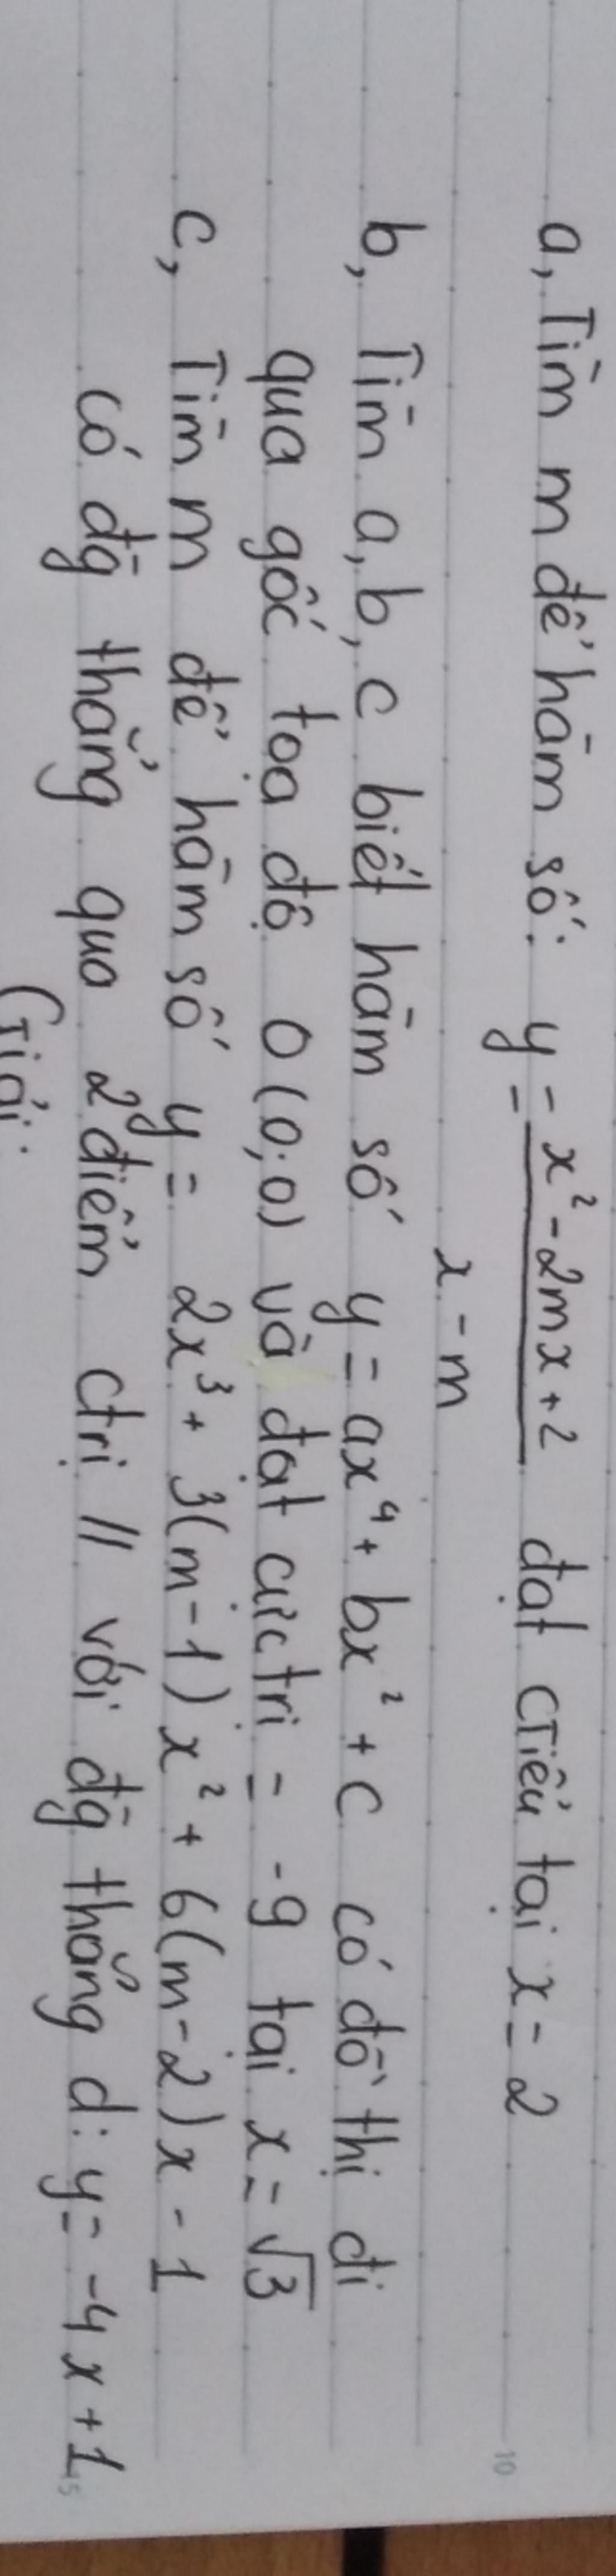 a, Tìm m để hàm số: y = x² - 2mx + 2 / x - m đạt ctiểu tại x = 2
b, Tìm a, b, c biết hàm số y = ax⁴ + bx² + c có đồ thị đi
qua gốc toạ độ O (0; 0) và đạt cực trị = -9 tại x = √3
c, Tìm m để hàm số y = 2x³ + 3(m-1)x² + 6(m-2)x - 1
có đg thẳng qua 2 điểm ctrị // với đg thẳng d: y = -4x + 1
Giải:
10
15